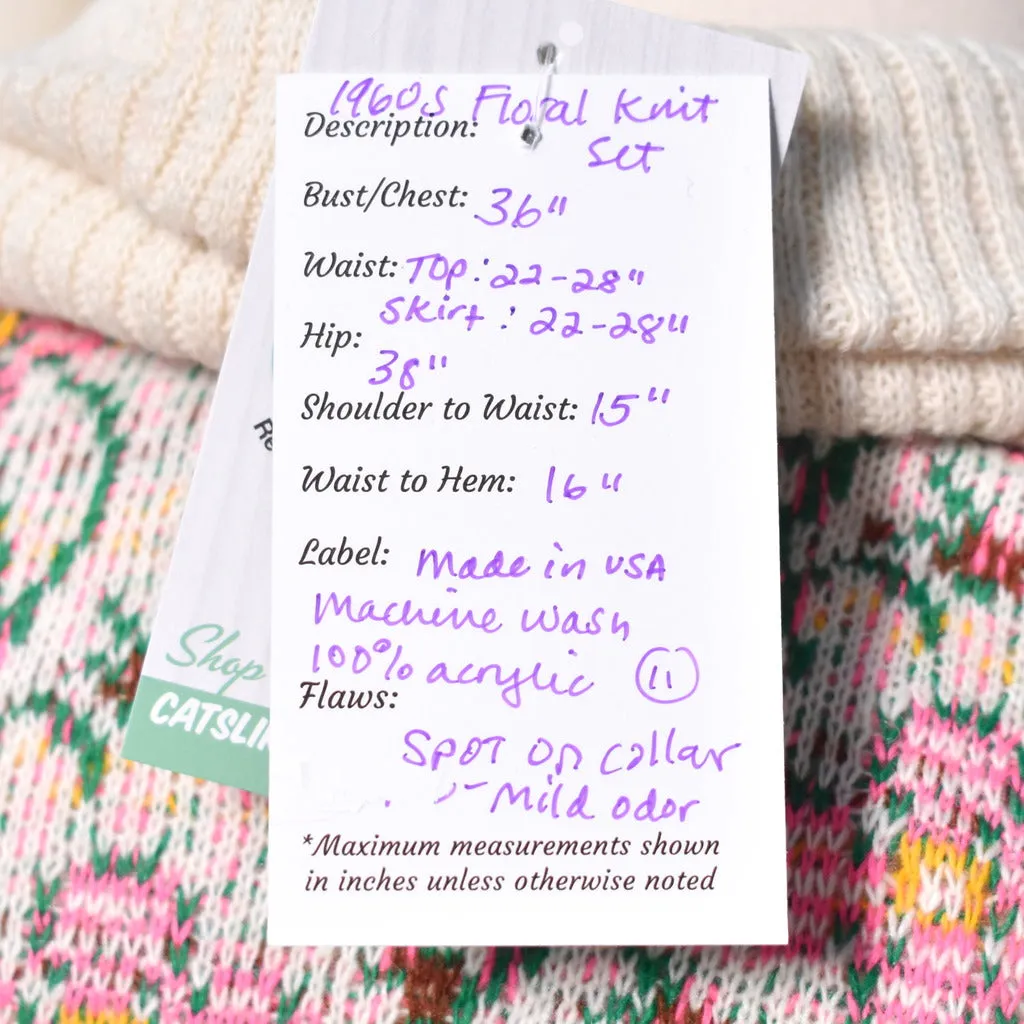 1960s Floral Knit
Description:
Set
Bust/Chest: 36"
Waist: Top: 22-28"
Skirt: 22-28"
Hip:
38"
Shoulder to Waist: 15"
Waist to Hem: 16"
Label: Made in USA
Machine wash
100% acrylic 11
Flaws:
Spot on collar
- Mild odor
*Maximum measurements shown
in inches unless otherwise noted
Re
Shop
CATSLI